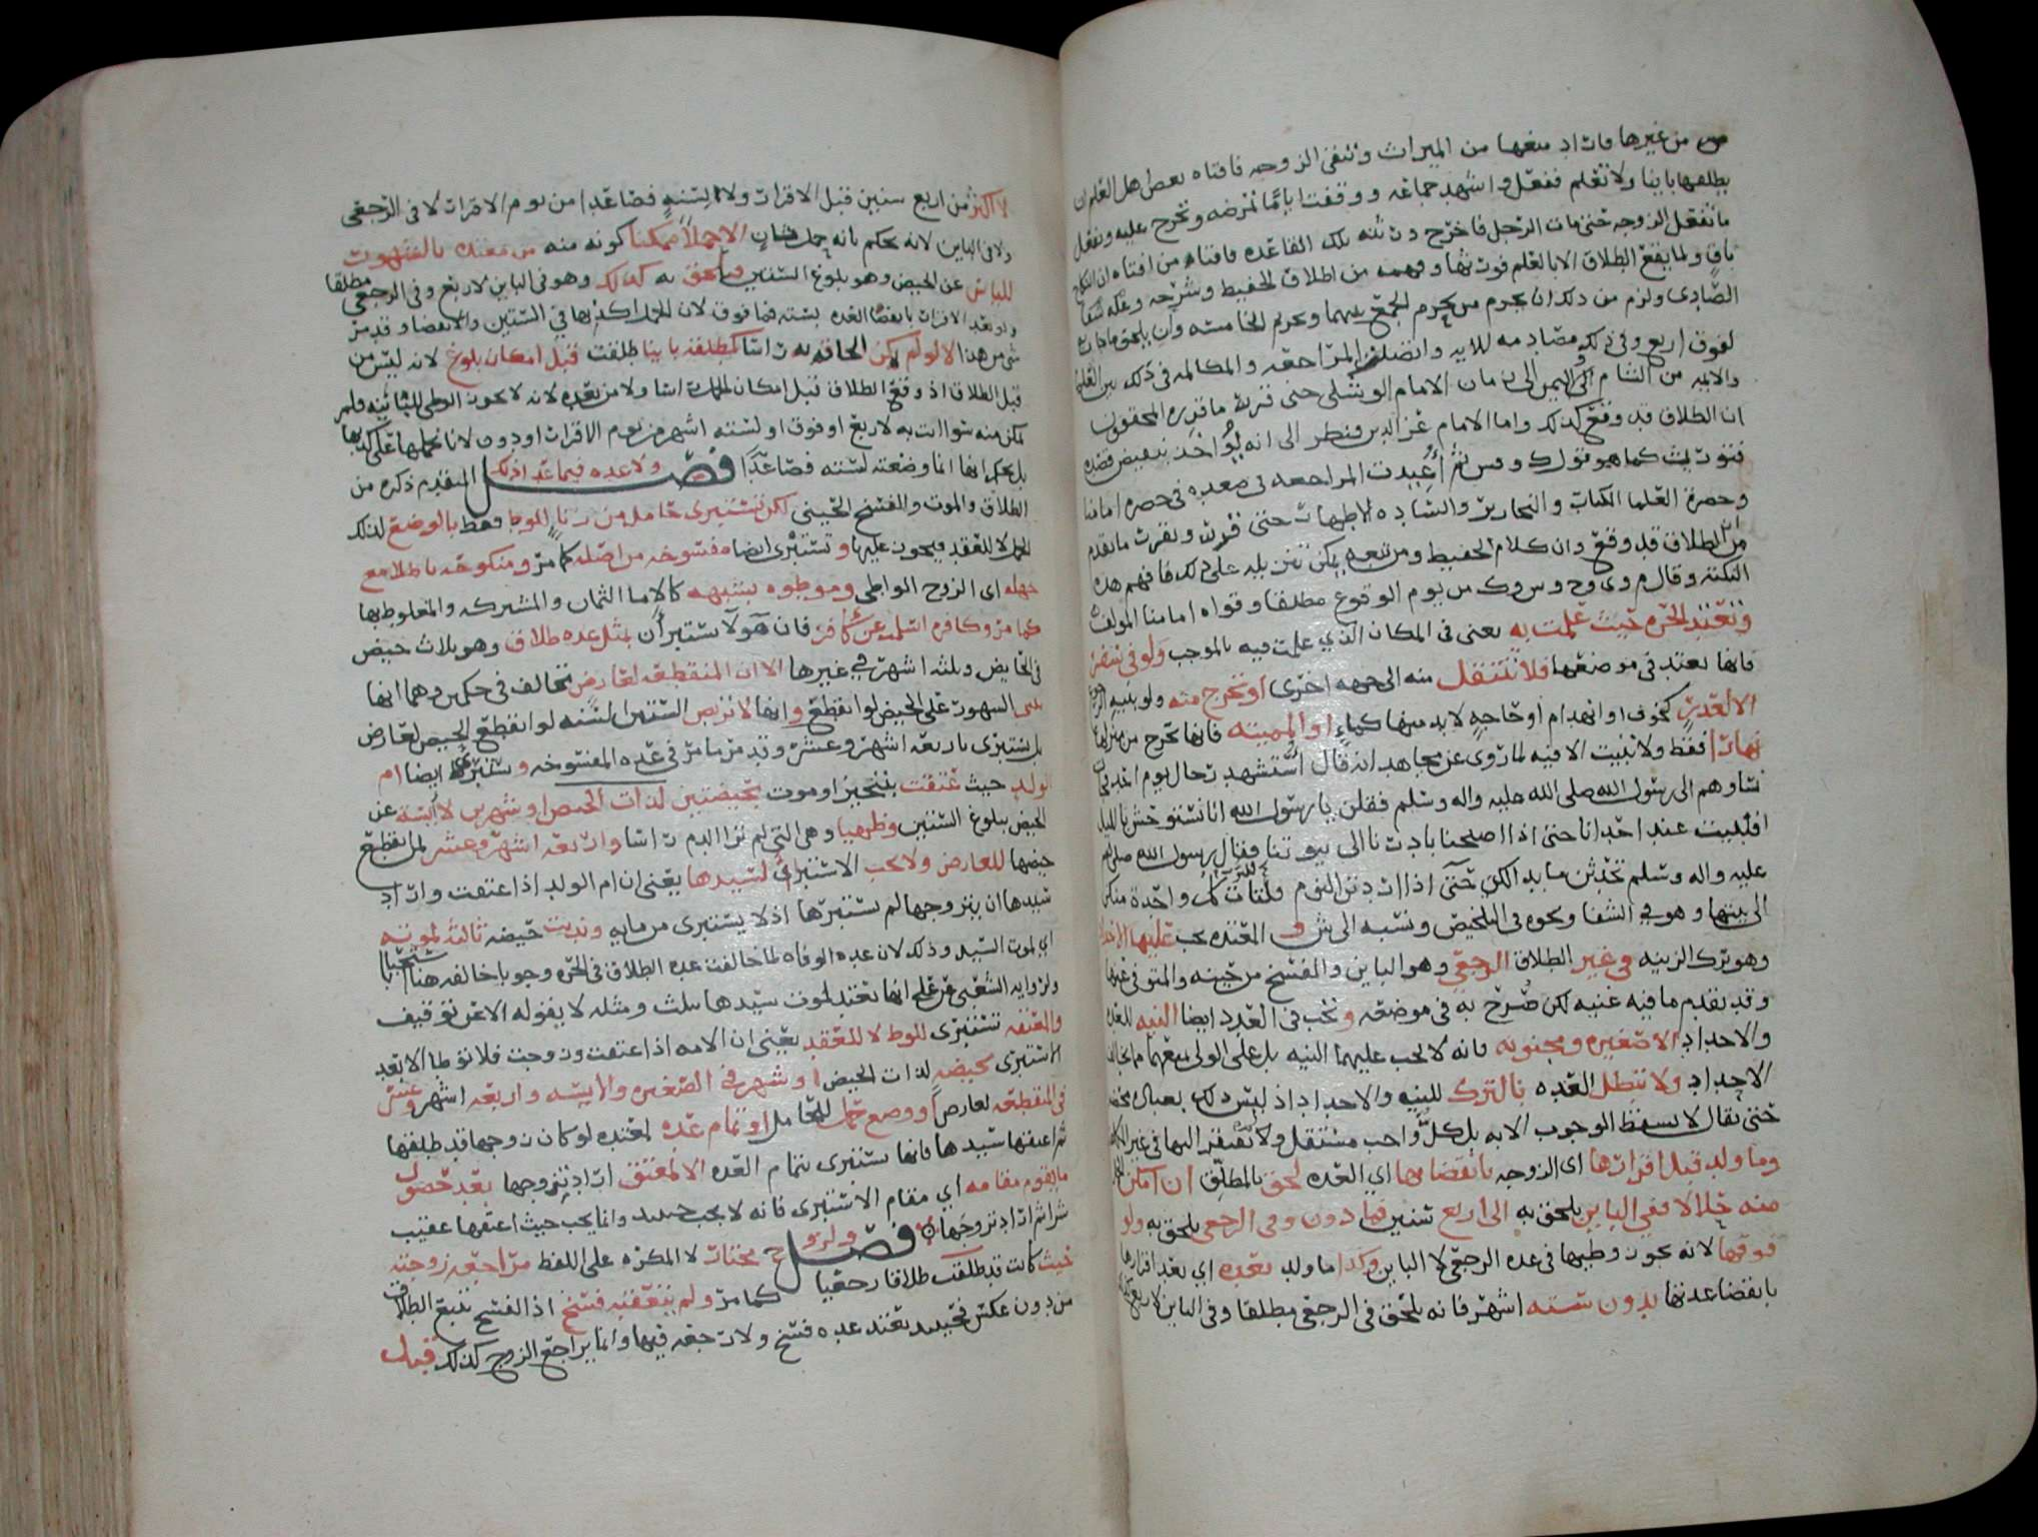 من غيرها فاراد منعها من الميراث وتنفى الزوجه فافتاه بعض اهل العلم ان
يطلقها باينا ولا تعلم ففعل واشهد جماعه ووقفت اياما تمرضه وتخرج عليه وتفعل
ما تفعل الزوجه حتى مات الرجل فاخرج ورثته تلك القاعده فافتاه من افتاه ان النكاح
باق ولما يقع الطلاق الا بالعلم فورثها وفهمه من اطلاق الحفيظ وشرحه
الصادى ولزم من ذلك ان يحرم من يحرم الجمع بينهما وتحرم الخامسه وان يلحق ما جات به
لفوق اربع وفى ذلك مصادمه للايه واتصلت المراجعه والمكالمه فى ذلك بين العلما
والايمه من الشام الى اليمن الى زمان الامام الوشلى حتى قرر ما قرره المحققون
ان الطلاق قد وقع كذلك واما الامام عز الدين فنظر الى انه يؤاخذ بنقيض قصده
فتورث كما هو قول ك وس ثم أعيدت المراجعه فى صعده فى حصره امامنا
وحضرة العلما الكبار والنحارير والساده الاطهار حتى قررت وتقررت ما تقدم
من ان الطلاق قد وقع وان كلام الحفيظ ومن تبعه يمكن تنزيله على ذلك فافهم هذه
النكته وقال م وى وح وس وك من يوم الوقوع مطلقا وقواه امامنا المولف
وتعتد الحره حيث علمت به يعنى فى المكان الذي علمت فيه بالموجب ولو فى سفر
فانها تعتد فى موضعها فلا تنتقل منه الى جهه اخرى او تخرج منه ولو باذن الزوج
الا لعذر كخوف او انهدام او حاجه لا بد منها كماء او المميته فانها تخرج من منزلها
نهارا فقط ولا تبيت الا فيه لما روى عن مجاهد انه قال استشهد رجال يوم احد فجا
نساوهم الى رسول الله صلى الله عليه واله وسلم فقلن يا رسول الله انا نستوحش بالليل
افنبيت عند احدانا حتى اذا اصبحنا بادرنا الى بيوتنا فقال رسول الله صلى الله
عليه واله وسلم تحدثن ما بدا لكن حتى اذا اردتن النوم فلتات كل واحدة منكن
الى بيتها وهو في الشفا ونحوه فى التلخيص ونسبه الى ش و المعتده يجب عليها الاحداد
وهو ترك الزينه فى غير الطلاق الرجعي وهو الباين والفسخ من حينه والمتوفى عنها
وقد تقدم ما فيه غنيه لكن صرح به فى موضعه وتجب فى العدد ايضا النيه للعده
والاحداد الا صغيره ومجنونه فانه لا يجب عليهما النيه بل على الولى منعهما مما يخالف
الاحداد ولا تبطل العده بالترك للنيه والاحداد اذ ليس ذلك بعباده محضه
حتى يقال لا يسقط الوجوب الا به بل كل واحب مستقل ولا تفتقر اليها فى غير
وما ولد قبل اقرارها اى الزوجه بانقضائها اي العده لحق بالمطلق ان امكن
منه حلالا ففى الباين يلحق به الى اربع سنين فما دون وفى الرجعى يلحق به ولو
فوقها لانه يجوز وطيها فى عده الرجعى لا الباين وكذا ما ولد بعده اي بعد اقرارها
بانقضا عدتها بدون سته اشهر فانه يلحق فى الرجعى مطلقا وفى الباين لاربع
لا اكثر من اربع سنين قبل الاقرار ولا لستة فصاعدا من يوم الاقرار لا فى الرجعي
ولا فى الباين لانه يحكم بانه حمل ثان الا حملا ممكنا كونه منه من معتده بالشهور
للياس عن الحيض وهو بلوغ الستين فيلحق به كذلك وهو فى الباين لاربع وفى الرجعى مطلقا
ولو بعد الاقرار بانقضا العده بسته فما فوق لان الحمل اكذبها في الستين والانقضا وقد مر
شى من هذا الا لو لم يمكن الحاقه به راسا كمطلقه باينا طلقت قبل امكان بلوغ لانه ليس من
قبل الطلاق اذ وقع الطلاق قبل امكان الحمل راسا ولا من بعده لانه لا يجوز الوطى للباينه فلم
يمكن منه سوا اتت به لاربع او فوق او لسته اشهر من يوم الاقرار او دون لانا نحملها على كذبها
بل يحكم انها انما وضعته لسته فصاعدا فصل ولا عده فيما عدا ذلك المتقدم ذكره من
الطلاق والموت والفسخ الحينى لكن تستبرى حامل من زنا للوطء فقط بالوضع لذلك
الحمل لا للعقد فيجوز عليها وتستبرى ايضا مفسوخه من اصله كما مر ومنكوحه باطلا مع
جهله اى الزوج الواطى وموطوه بشبهه كالاما الثمان والمشتركه والمغلوط بها
كما مر وكافره اسلمت عن كافر فان هولا يستبرأن بمثل عده طلاق وهو ثلاث حيض
فى الحايض وثلثه اشهر في غيرها الا ان المنقطعه لعارض تخالف فى حكمين وهما انها
بل تستبرى باربعه اشهر وعشر وقد مر ما مر فى عده المفسوخه وتستبرى ايضا ام
الولد حيث عتقت بتنجيز او موت بحيضتين لذات الحيض او شهرين لآيسة عن
الحيض ببلوغ الستين وظهيا وهى التى لم تر الدم راسا واربعه اشهر وعشر لمن انقطع
حيضها للعارض ولا يجب الاستبراء لسيدها يعنى ان ام الولد اذا عتقت واراد
سيدها ان يتزوجها لم تستبرها اذ لا يستبرى من مايه وندبت حيضه ثالثه لموته
اي لموت السيد وذلك لان عده الوفاه لما خالفت عده الطلاق فى الحره وجوبا خالفه هنا استحبابا
ولروايه الشعبى عن علي انها تعتد لموت سيدها بثلث ومثله لا يقوله الا عن توقيف
والمعتقه تستبرى للوط لا للعقد يعنى ان الامه اذا عتقت وزوجت فلا توطا الا بعد
الاستبرى بحيضه لذات الحيض او شهر فى الصغير والايسه واربعه اشهر وعشر
فى المنقطعه لعارض او وضع حمل للحامل او تمام عده لمعتده لو كان زوجها قد طلقها
ثم اعتقها سيدها فانها تستبرى بتمام العده الا لمعتق اراد تزوجها بعد حصول
ما يقوم مقامه اي مقام الاستبرى فانه لا يجب حينئذ وانما يجب حيث اعتقها عقيب
شرا ثم اراد تزوجها فصل ولزوج مختار لا المكره على اللفظ مراجعه زوجته
حيث كانت قد طلقت طلاقا رجعيا كما مر ولم يتعقبه فسخ اذ الفسخ يتبع الطلاق
من دون عكس فحينئذ تعتد عده فسخ ولا رجعه فيها وانما يراجع الزوج كذلك قبل